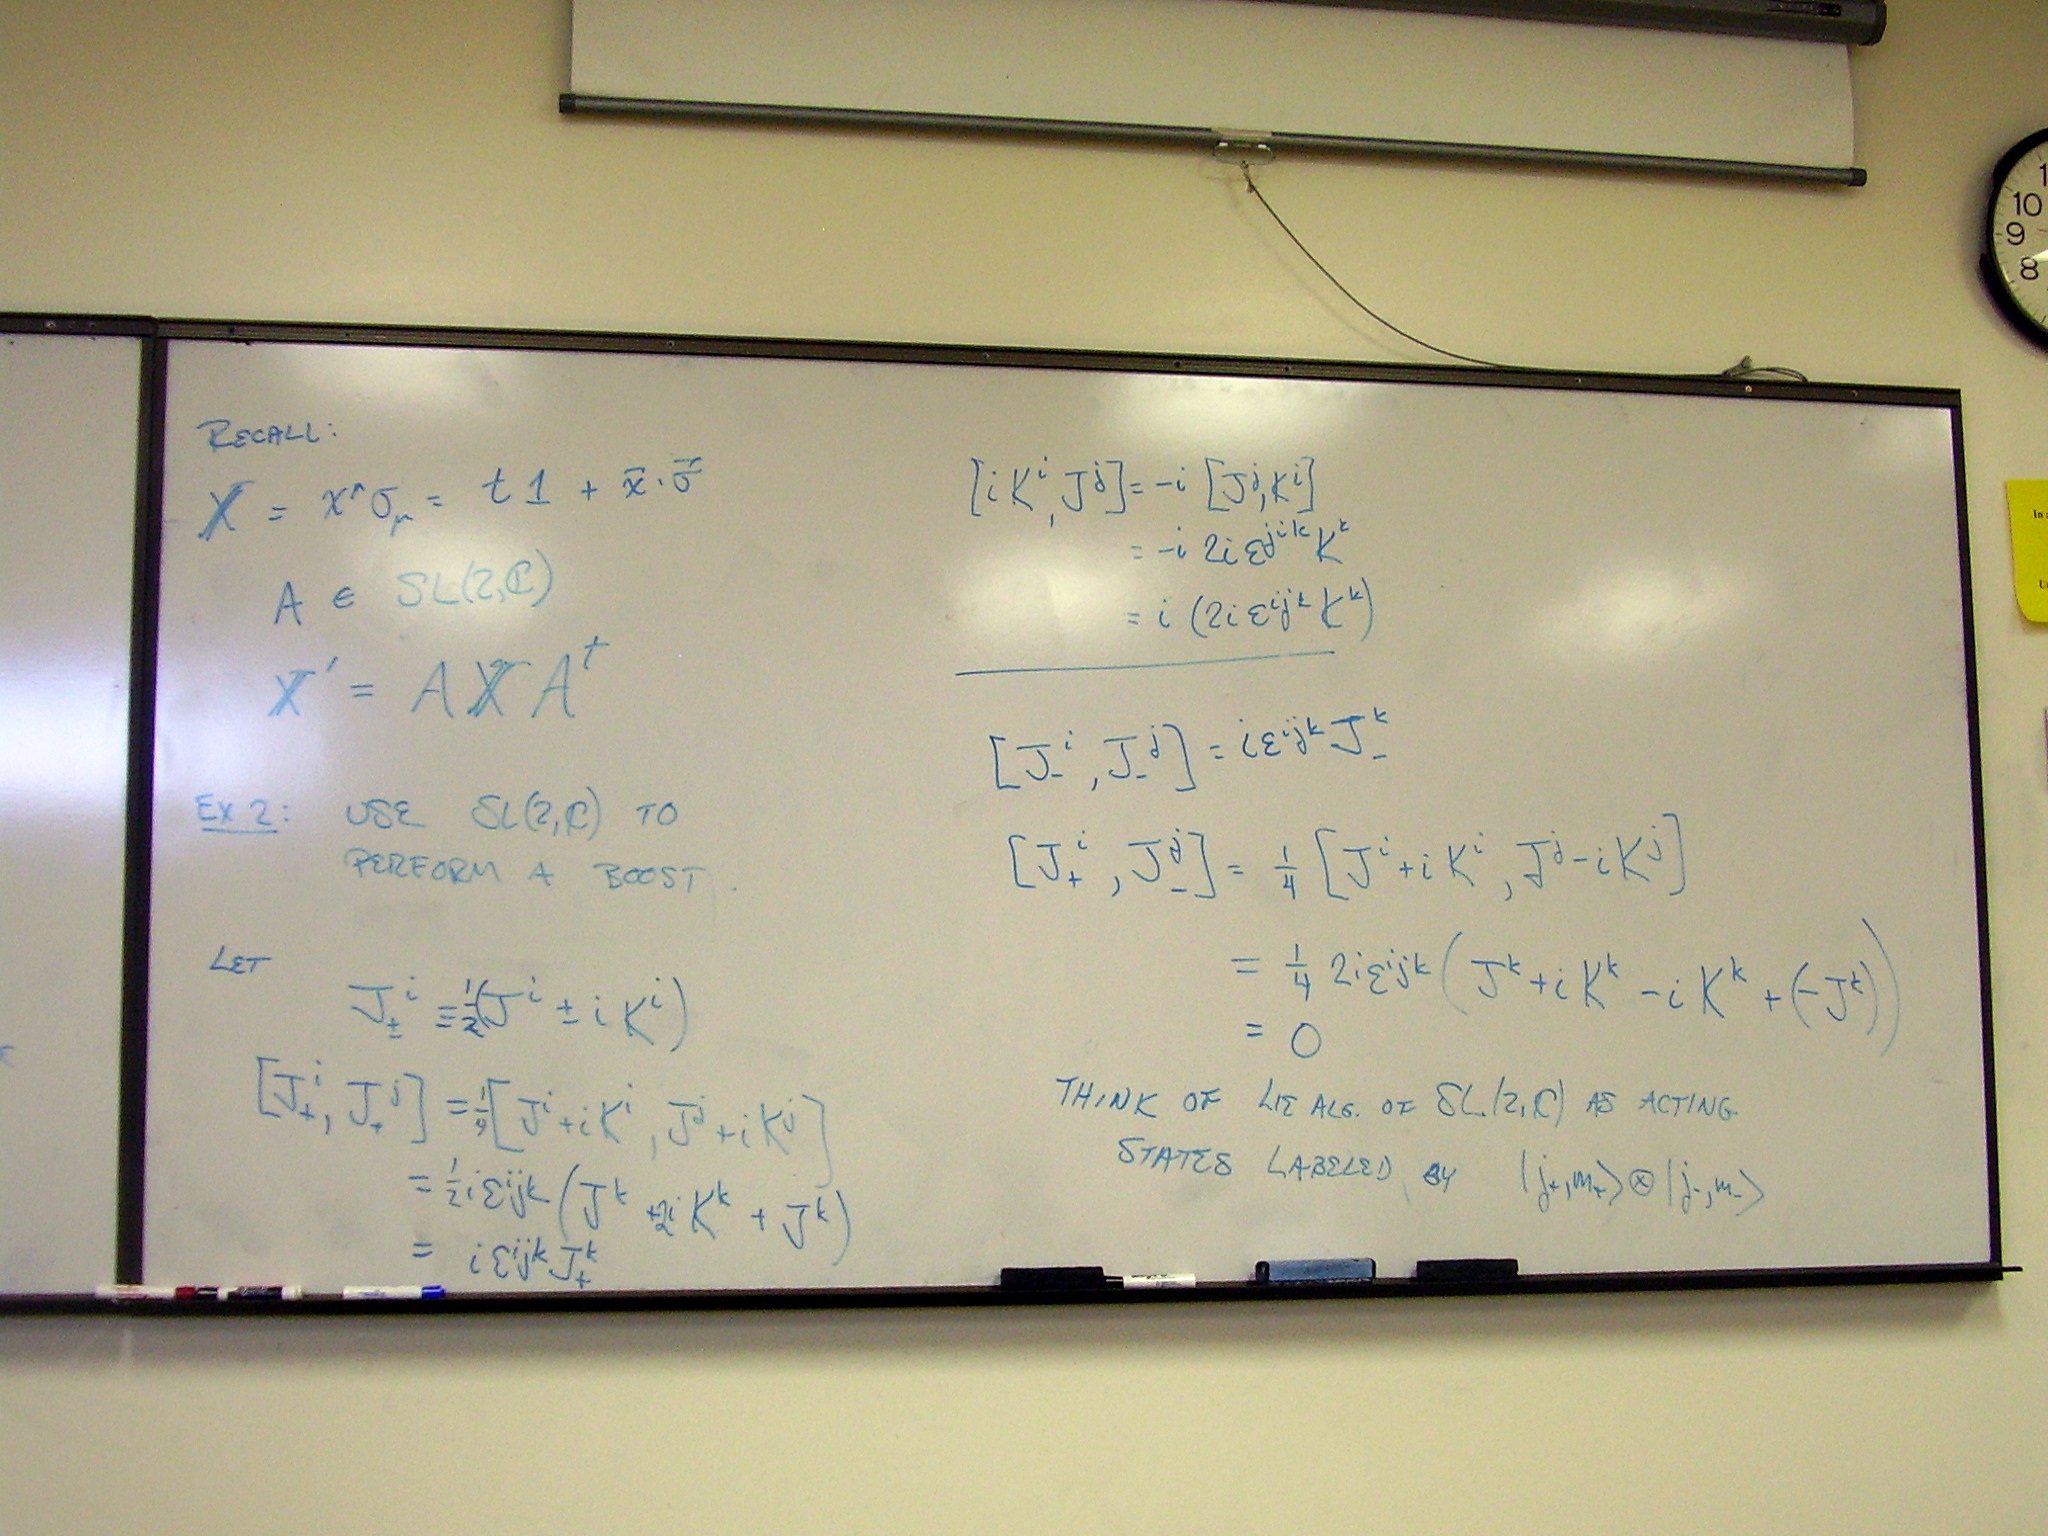 RECALL:
X = x^μ σ_μ = t 1 + x⃗ · σ⃗
A ∈ SL(2,ℂ)
X' = A X A^†
Ex 2: USE SL(2,ℂ) TO
PERFORM A BOOST.
LET
J_±^i ≡ 1/2 (J^i ± i K^i)
[J_+^i, J_+^j] = 1/4 [J^i + i K^i, J^j + i K^j]
= 1/2 i ε^{ijk} (J^k + 2i K^k + J^k)
= i ε^{ijk} J_+^k
[i K^i, J^j] = -i [J^j, K^i]
= -i 2i ε^{jik} K^k
= i (2i ε^{ijk} K^k)
[J_-^i, J_-^j] = i ε^{ijk} J_-^k
[J_+^i, J_-^j] = 1/4 [J^i + i K^i, J^j - i K^j]
= 1/4 2i ε^{ijk} (J^k + i K^k - i K^k + (-J^k))
= 0
THINK OF LIE ALG. OF SL(2,ℂ) AS ACTING
STATES LABELED BY |j_+, m_+⟩ ⊗ |j_-, m_-⟩
10
9
8